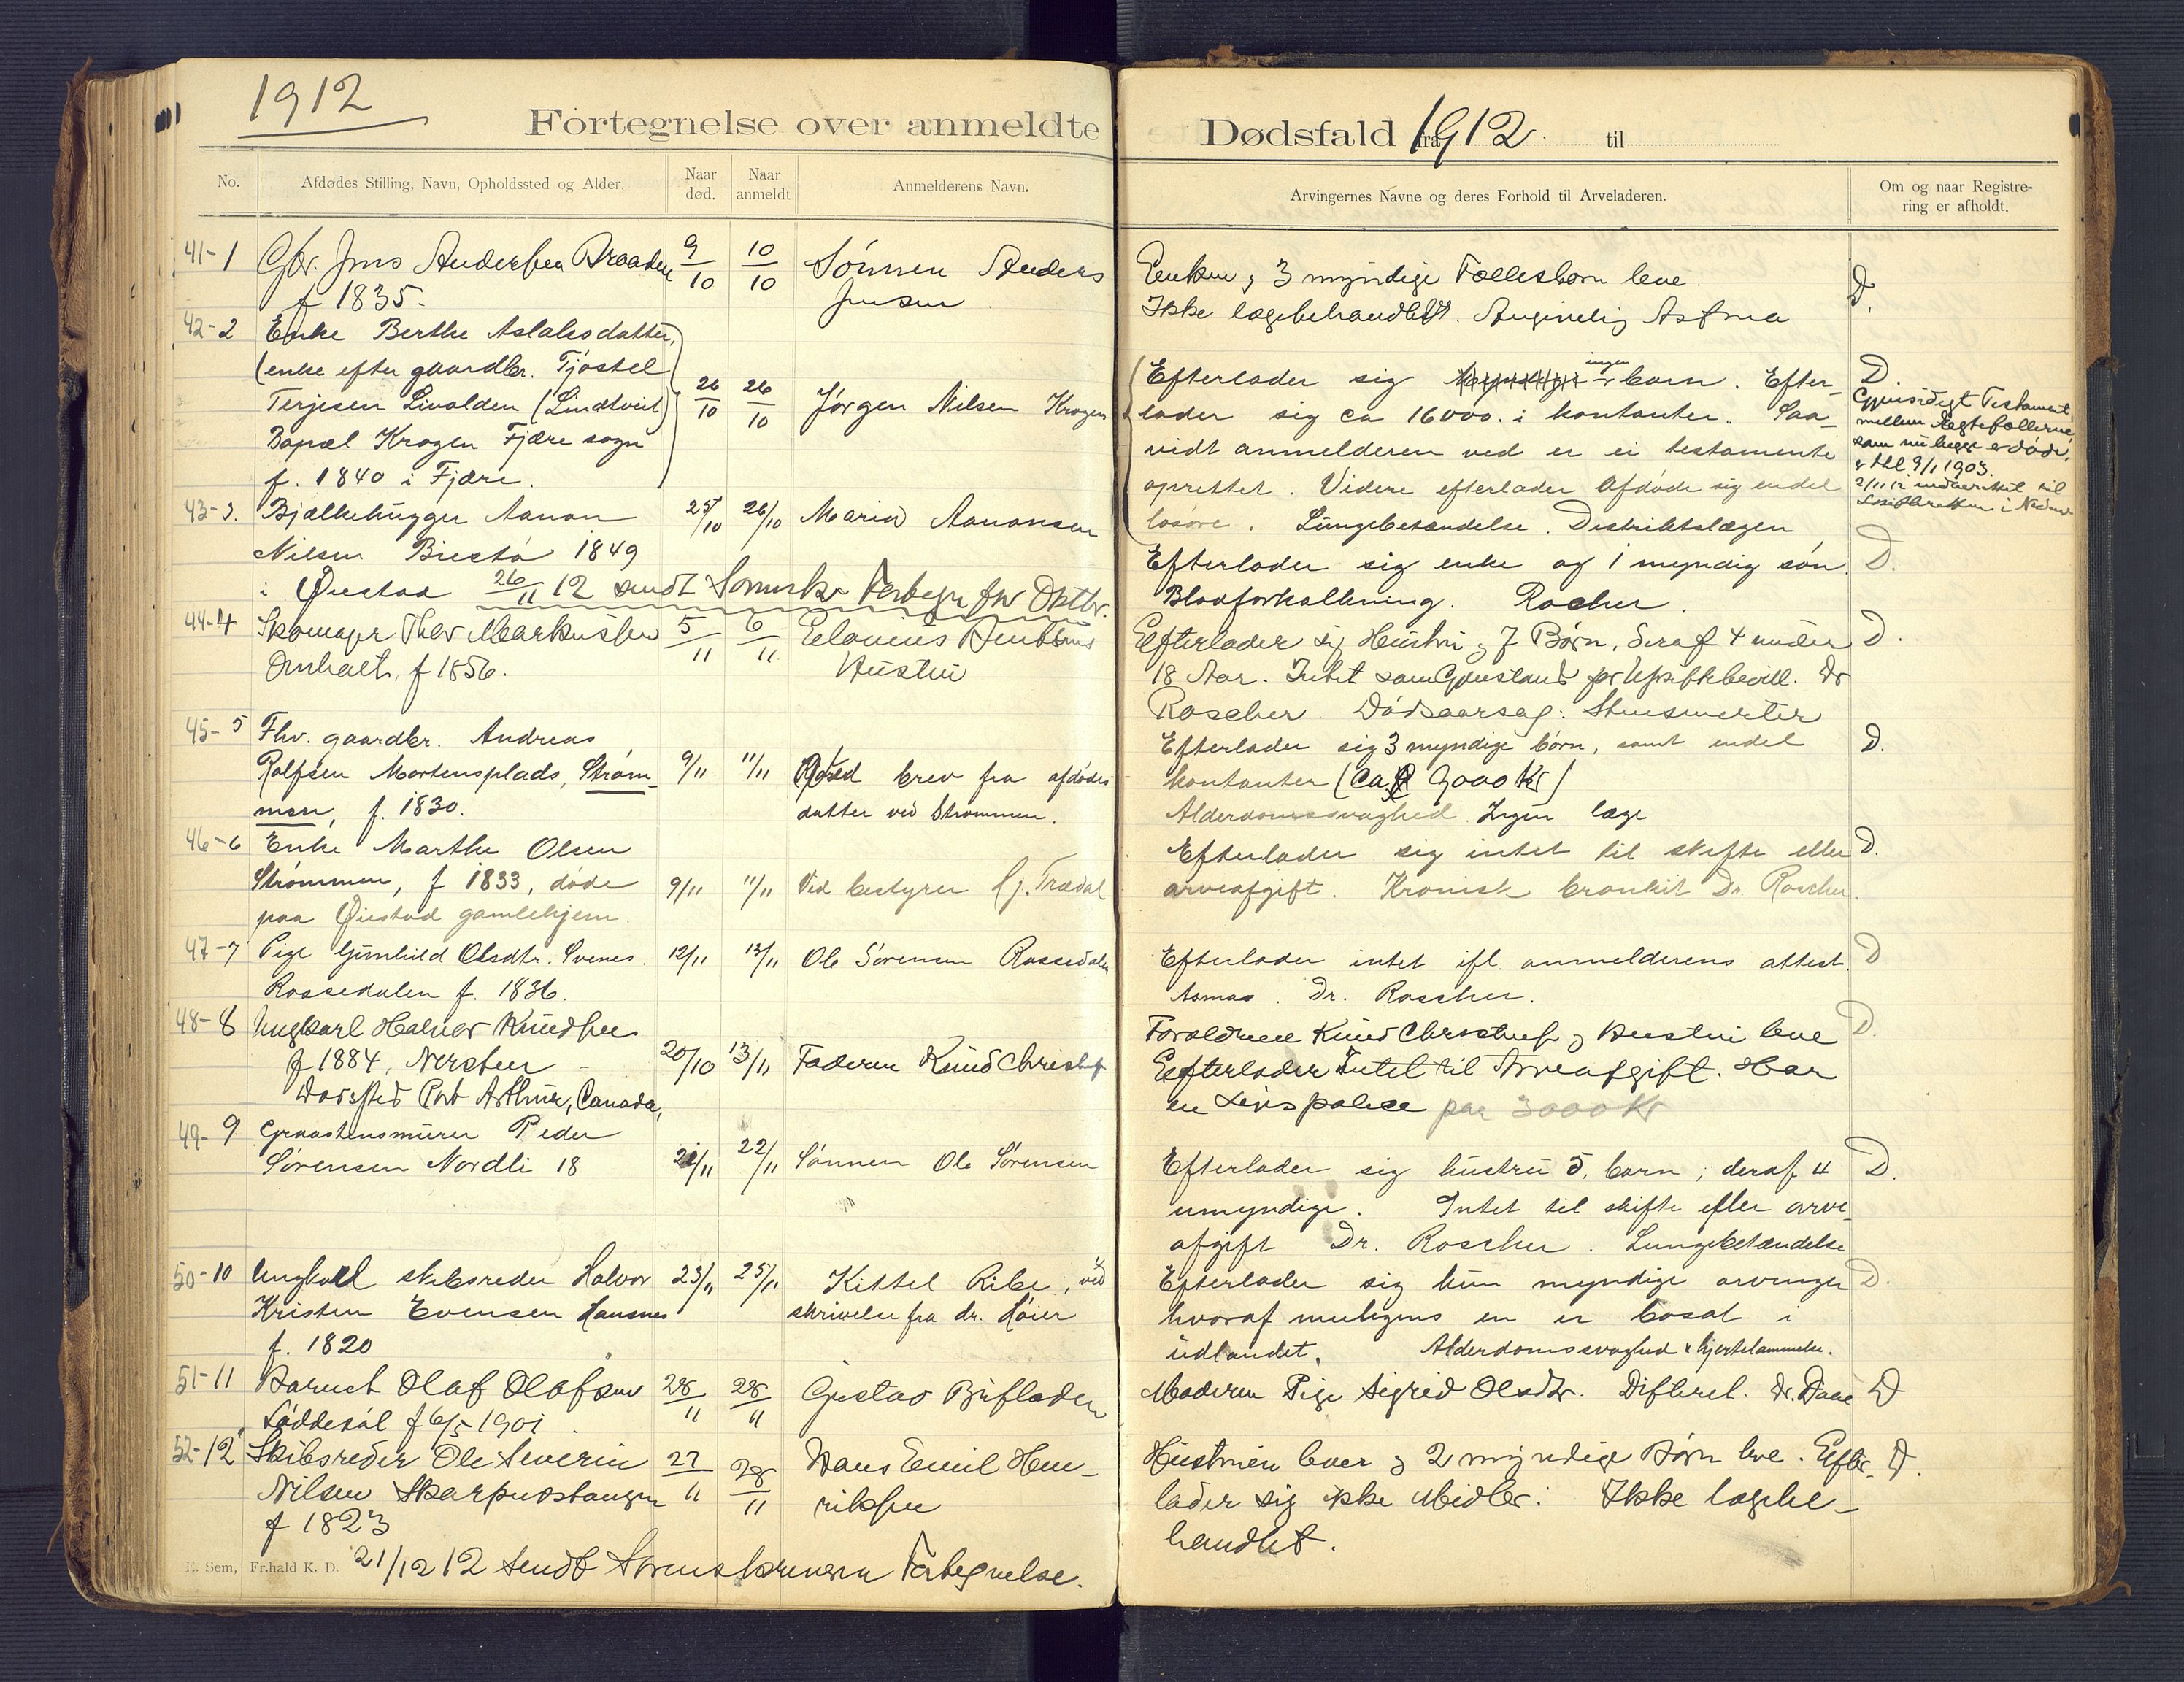 1912
Fortegnelse over anmeldte Dødsfald fra 1912 til
No. Afdødes Stilling, Navn, Opholdssted og Alder. Naar død. Naar anmeldt Anmelderens Navn. Arvingernes Navne og deres Forhold til Arveladeren. Om og naar Registrering er afholdt.
41-1 Gbr. Jens Andersen Braaden 9/10 10/10 Sønnen Anders
f 1835. Jensen
Enken og 3 myndige Fællesbørn leve. D.
Ikke lægebehandlet. Angivelig Astma
42-2 Enke Berthe Aslaksdatter,
(enke efter gaardbr. Tjøstel
Terjesen Livolden (Lindtveit) 26/10 26/10 Jørgen Nilsen Krogen
Bopæl Krogen Fjære sogn
f. 1840 i Fjære.
Efterlader sig ingen barn. Efter- D.
lader sig ca 16000. i kontanter. Saa-
vidt anmelderen ved er ei testamente
oprettet. Videre efterlader Afdøde sig endel
løsøre. Lungebetændelse. Distriktslægen
Gjensidigt Testament
mellem Ægtefællerne,
som nu begge er døde,
9/1 1903.
43-3. Bjælkehugger Aanon 25/10 26/10 Maria Aanonsen
Nilsen Biestø 1849
i Øiestad 26/11 12 sendt Sorenskr. Fortegn. for Oktbr.
Efterlader sig enke og 1 myndig søn. D.
Blodforkalkning. Roscher.
44-4 Skomager Thor Markussen 5/11 6/11
Omholt, f 1856. Hustru
Efterlader sig Hustru og 7 Børn, deraf 4 under D.
18 Aar. Intet som Gjenstand for Dr
Roscher Dødsaarsag:
45-5 Fhv. gaardbr. Andreas
Rolfsen Mortensplads, Strøm- 9/11 11/11 brev fra afdødes
men, f. 1830. datter ved Strømmen.
Efterlader sig 3 myndige børn, samt endel D.
kontanter (Ca 9000 Kr)
Alderdomssvaghed. Ingen læge
46-6 Enke Marthe Olsen
Strømmen, f 1833, døde 9/11 11/11 Ved bestyrer Hj. Trædal
paa Øiestad gamlehjem.
Efterlader sig intet til skifte eller D.
arveafgift. Kronisk bronkit Dr. Roscher.
47-7 Pige Gunhild Olsdtr. Svenes. 12/11 13/11 Ole Sørensen Rossedalen
Rossedalen f. 1836.
Efterlader intet ifl. anmelderens attest. D
Dr. Roscher.
48-8 Ungkarl Halvor Knudsen
f 1884, Nersten 20/10 13/11 Faderen Knud Christof
Dødssted Port Arthur, Canada,
Forældrene Knud Christof og Hustru leve D.
Efterlader Intet til Arveafgift. Har
en Livspolice paa 3000 Kr
49-9 Graastensmurer Peder
Sørensen Nordli 18 21/11 22/11 Sønnen Ole Sørensen
Efterlader sig hustru 5. barn, deraf 4 D.
umyndige. Intet til skifte eller arve-
afgift Dr. Roscher. Lungebetændelse
50-10 Ungkarl skibsreder Halvor 23/11 25/11 Kittel Ribe, ved
Kristen Evensen Hansnes skrivelse fra dr. Høier
f. 1820
Efterlader sig kun myndige arvinger D.
hvoraf muligens en er bosat i
udlandet, Alderdomssvaghed & hjertelammelse.
51-11 Barnet Olaf Olafsen 28/11 28/11 Gustav Bufladen
Løddesøl f 6/5 1901
Moderen Pige Sigrid Olsdtr. Difterit. Dr. Daae D
52-12 Skibsreder Ole Severin 27/11 28/11 Hans Emil Hen-
Nilsen Skarpnestangen riksen
f 1823
Hustruen lever og 2 myndige Børn leve. Efter- D.
lader sig ikke Midler. Ikke lægebe-
handlet.
E. Sem, Fr.hald K. D. 21/12 12 sendt Sorenskriveren Fortegnelse.